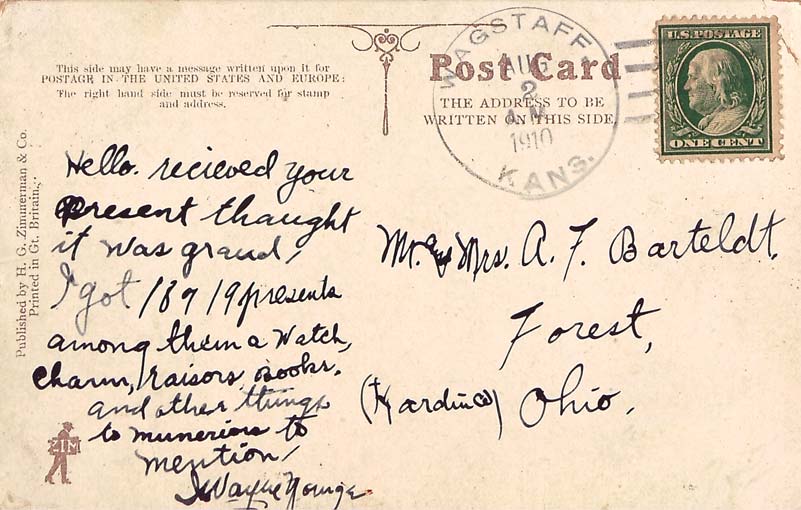 This side may have a message written upon it for
POSTAGE IN THE UNITED STATES AND EUROPE:
The right hand side must be reserved for stamp
and address.
Post Card
THE ADDRESS TO BE
WRITTEN ON THIS SIDE.
WAGSTAFF
AUG
2
A.M.
1910
KANS.
U.S. POSTAGE
ONE CENT
Published by H. G. Zimmerman & Co.
Printed in Gt. Britain.
Hello. recieved your
present thaught
it was grand,
I got 18 or 19 presents
among them a Watch,
Charm, Raisors, Books.
and other things
to munerious to
mention,
Wayne Younge
Mr. & Mrs. A. F. Barteldt.
Forest,
(Hardin Co) Ohio.
ZIM